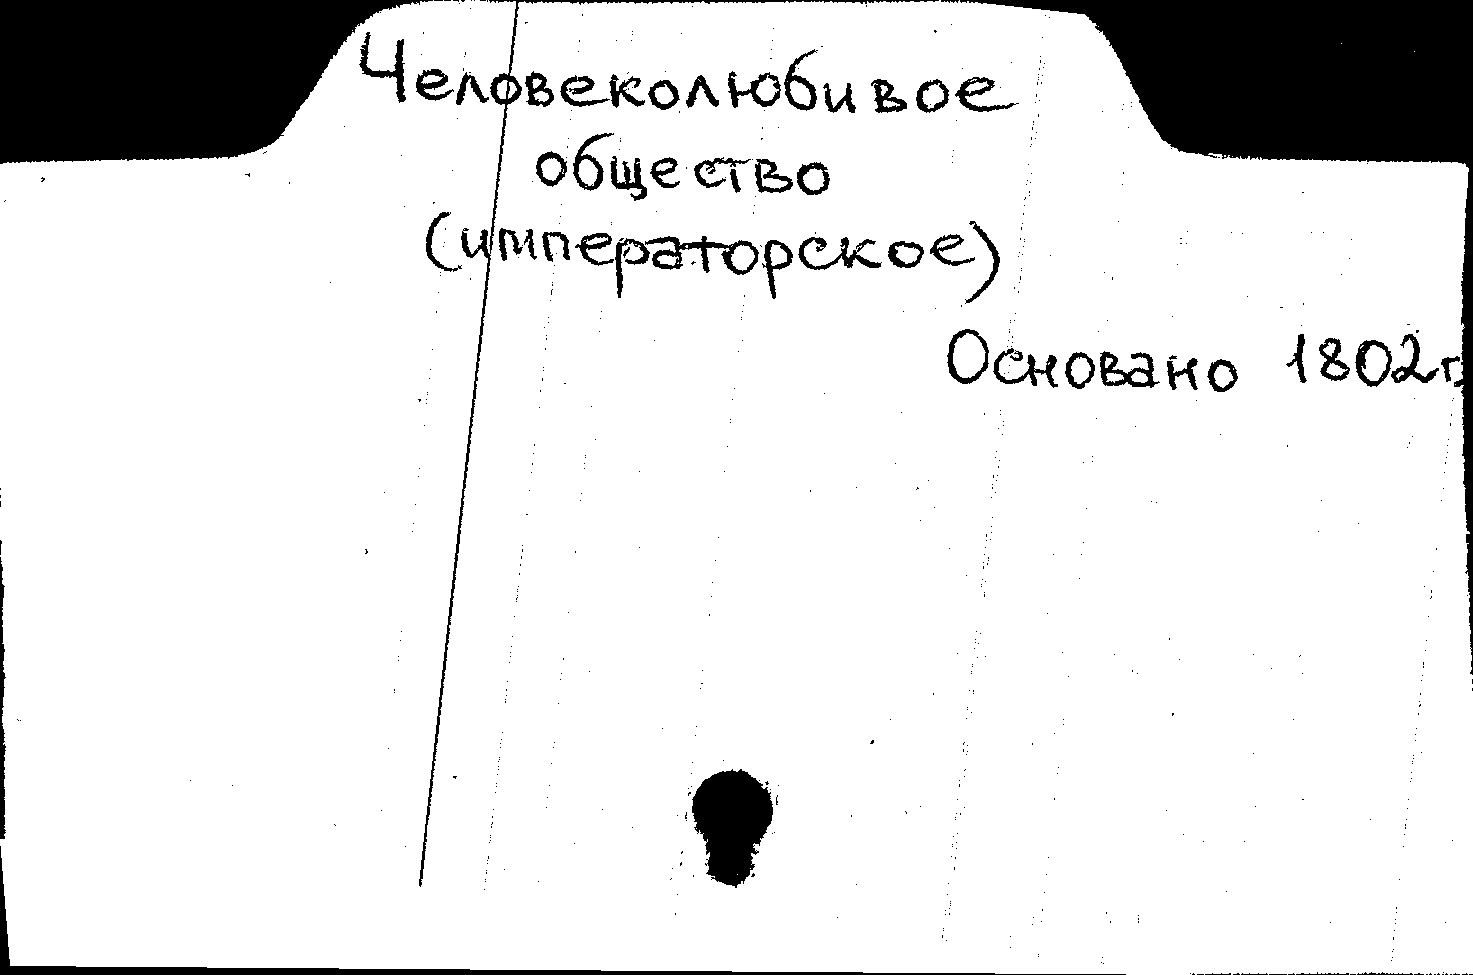 Человеколюбивое
общество
(императорское)
Основано 1802г.